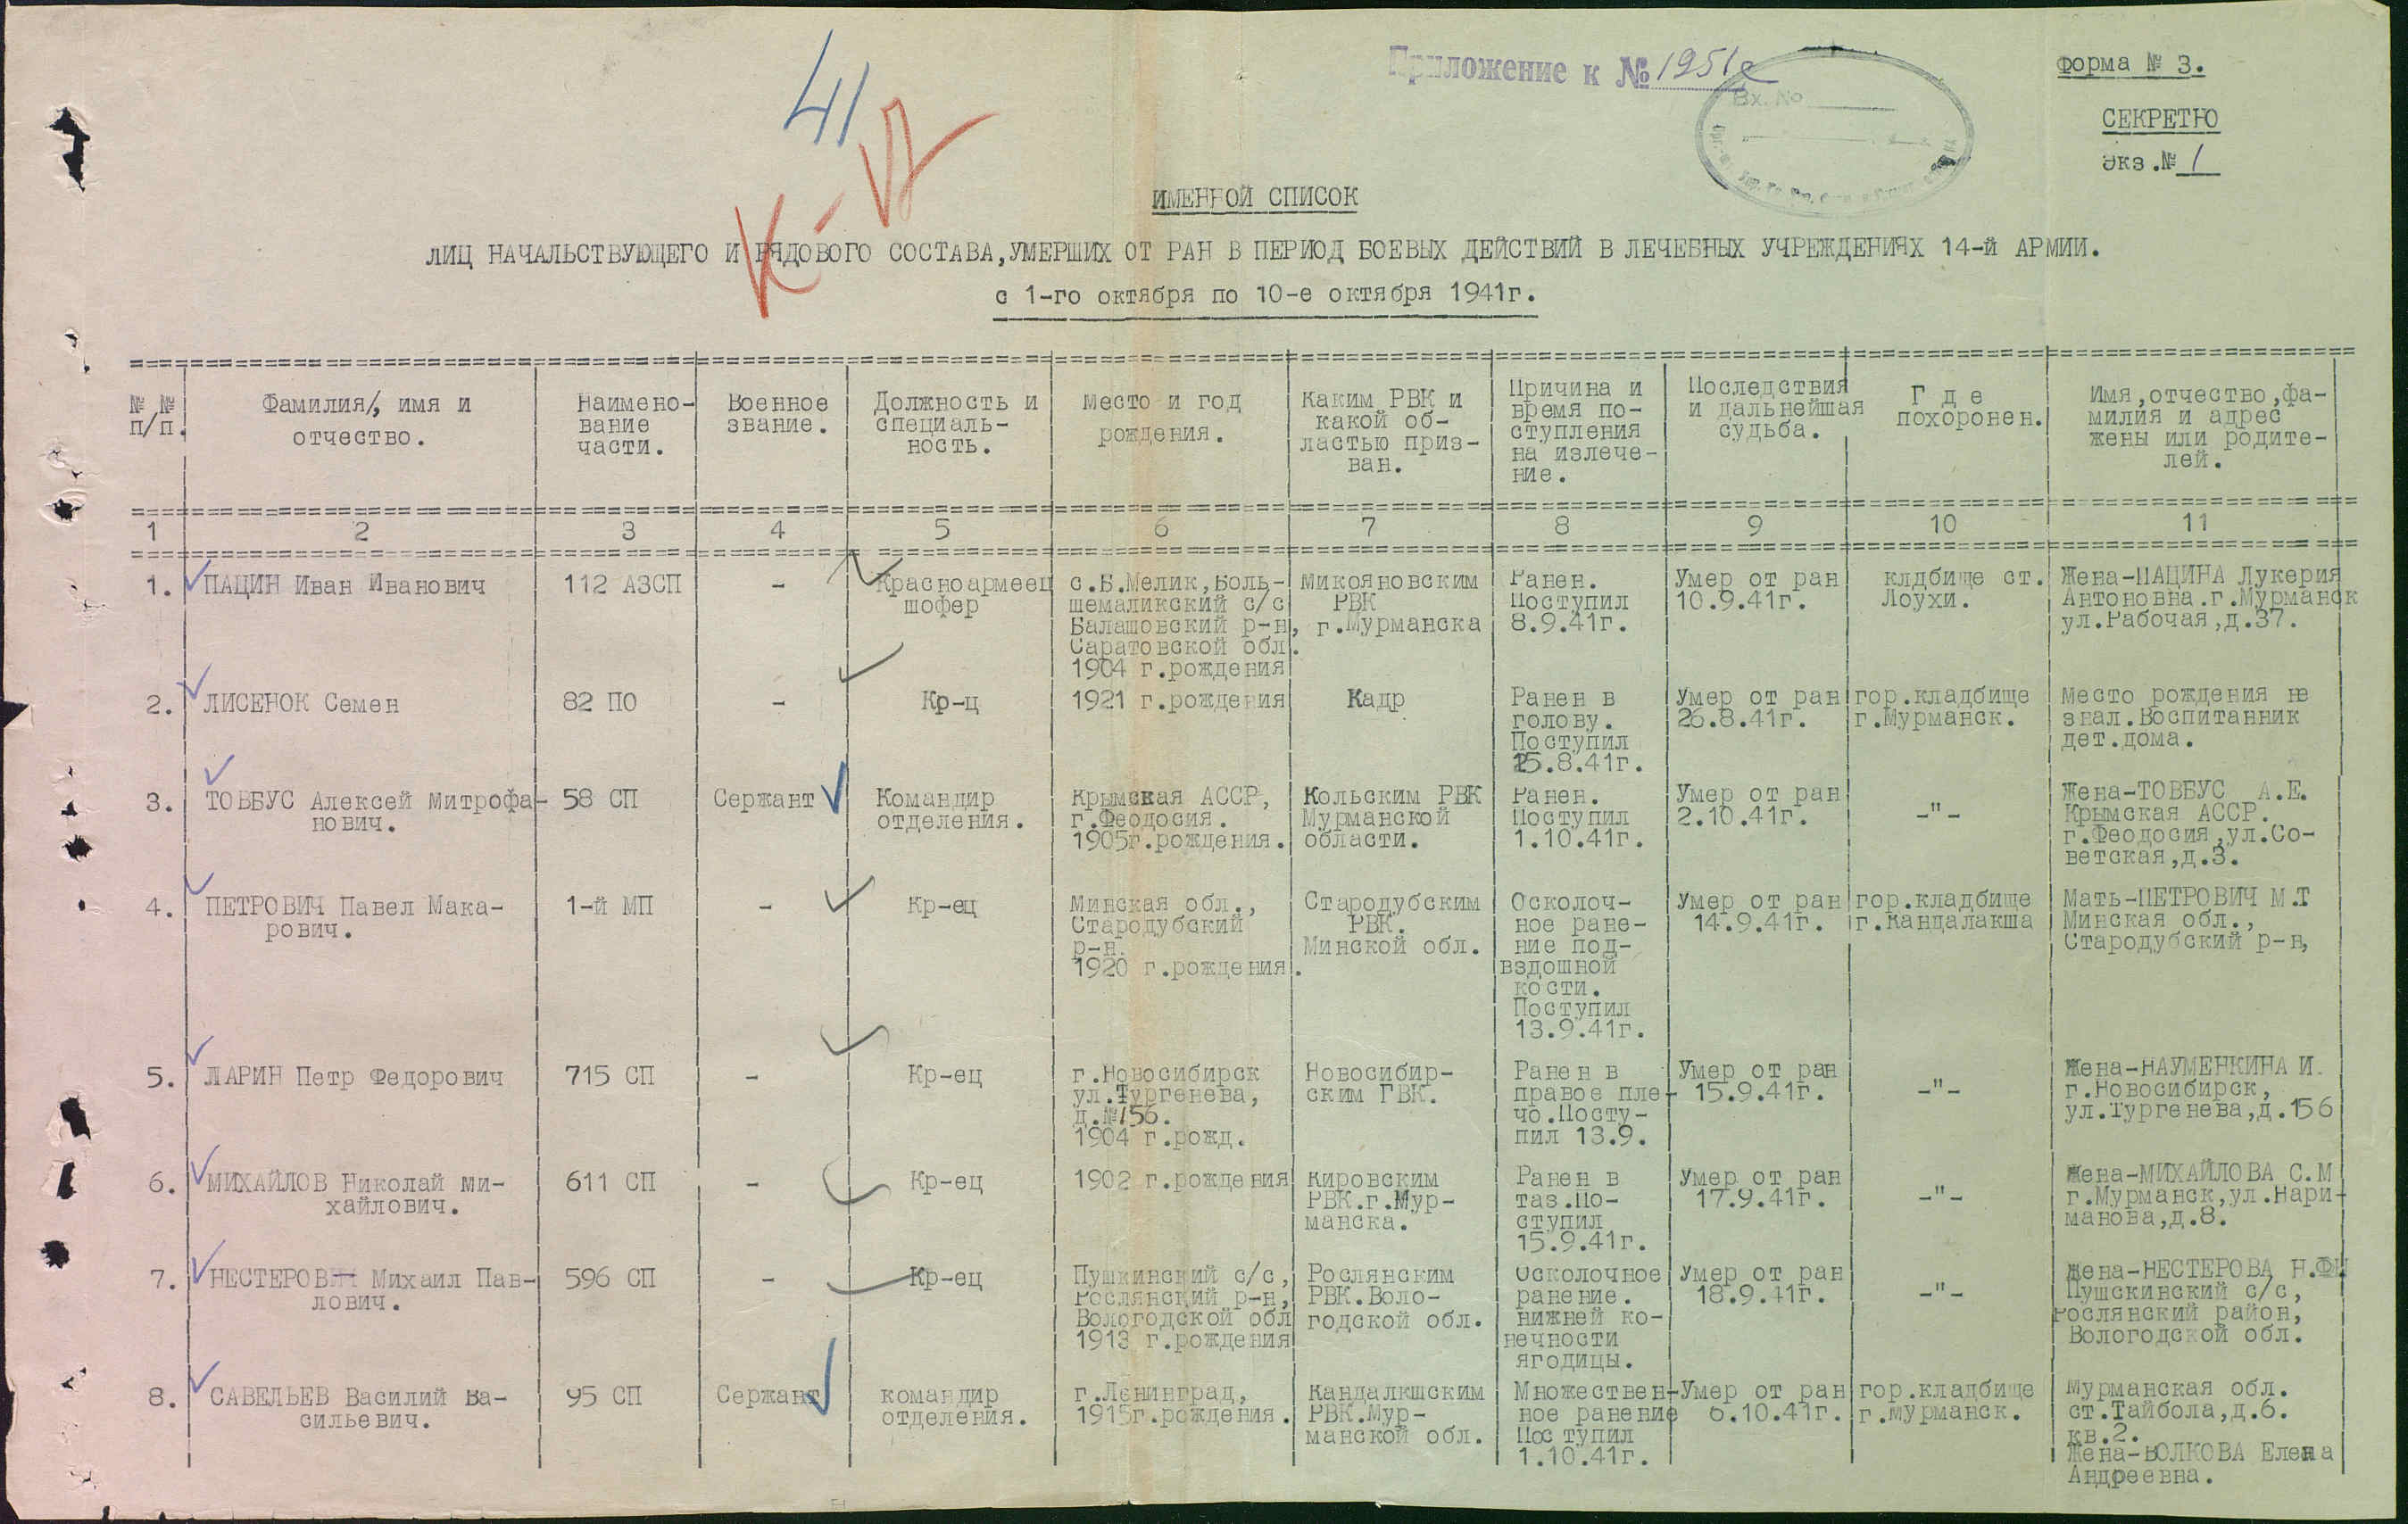 41
К-17
Приложение к № 1951с
Вх. №
форма № 3.
СЕКРЕТНО
Экз.№ 1
ИМЕННОЙ СПИСОК
ЛИЦ НАЧАЛЬСТВУЮЩЕГО И РЯДОВОГО СОСТАВА,УМЕРШИХ ОТ РАН В ПЕРИОД БОЕВЫХ ДЕЙСТВИЙ В ЛЕЧЕБНЫХ УЧРЕЖДЕНИЯХ 14-й АРМИИ.
с 1-го октября по 10-е октября 1941г.
№ №
п/п.
Фамилия/, имя и
отчество.
Наимено-
вание
части.
Военное
звание.
Должность и
специаль-
ность.
Место и год
рождения.
Каким РВК и
какой об-
ластью приз-
ван.
Причина и
время по-
ступления
на излече-
ние.
Последствия
и дальнейшая
судьба.
Г д е
похоронен.
Имя,отчество,фа-
милия и адрес
жены или родите-
лей.
1 2 3 4 5 6 7 8 9 10 11
1.
ПАЦИН Иван Иванович
112 АЗСП
-
Красноармеец
шофер
с.Б.Мелик,Боль-
шемаликский с/с
Балашовский р-н,
Саратовской обл.
1904 г.рождения
Микояновским
РВК
г.Мурманска
Ранен.
Поступил
8.9.41г.
Умер от ран
10.9.41г.
клдбище ст.
Лоухи.
Жена-ПАЦИНА Лукерия
Антоновна.г.Мурманск
ул.Рабочая,д.37.
2.
ЛИСЕНОК Семен
82 ПО
-
Кр-ц
1921 г.рождения
Кадр
Ранен в
голову.
Поступил
25.8.41г.
Умер от ран
26.8.41г.
гор.кладбище
г.Мурманск.
Место рождения не
знал.Воспитанник
дет.дома.
3.
ТОВБУС Алексей Митрофа-
нович.
58 СП
Сержант
Командир
отделения.
Крымская АССР,
г.Феодосия.
1905г.рождения.
Кольским РВК
Мурманской
области.
Ранен.
Поступил
1.10.41г.
Умер от ран
2.10.41г.
-"-
Жена-ТОВБУС А.Е.
Крымская АССР.
г.Феодосия,ул.Со-
ветская,д.3.
4.
ПЕТРОВИЧ Павел Мака-
рович.
1-й МП
-
Кр-ец
Минская обл.,
Стародубский
р-н.
1920 г.рождения.
Стародубским
РВК.
Минской обл.
Осколоч-
ное ране-
ние под-
вздошной
кости.
Поступил
13.9.41г.
Умер от ран
14.9.41г.
гор.кладбище
г.Кандалакша
Мать-ПЕТРОВИЧ М.Т
Минская обл.,
Стародубский р-н,
5.
ЛАРИН Петр Федорович
715 СП
-
Кр-ец
г.Новосибирск
ул.Тургенева,
д.№156.
1904 г.рожд.
Новосибир-
ским ГВК.
Ранен в
правое пле-
чо.Посту-
пил 13.9.
Умер от ран
15.9.41г.
-"-
Жена-НАУМЕНКИНА И.
г.Новосибирск,
ул.Тургенева,д.156
6.
МИХАЙЛОВ Николай Ми-
хайлович.
611 СП
-
Кр-ец
1902 г.рождения
Кировским
РВК.г.Мур-
манска.
Ранен в
таз.По-
ступил
15.9.41г.
Умер от ран
17.9.41г.
-"-
Жена-МИХАЙЛОВА С.М
г.Мурманск,ул.Нари-
манова,д.8.
7.
НЕСТЕРОВ Михаил Пав-
лович.
596 СП
-
Кр-ец
Пушкинский с/с,
Рослянский р-н,
Вологодской обл
1913 г.рождения
Рослянским
РВК.Воло-
годской обл.
Осколочное
ранение.
нижней ко-
нечности
ягодицы.
Умер от ран
18.9.41г.
-"-
Жена-НЕСТЕРОВА Н.Ф.
Пушскинский с/с,
Рослянский район,
Вологодской обл.
8.
САВЕЛЬЕВ Василий Ва-
сильевич.
95 СП
Сержант
командир
отделения.
г.Ленинград,
1915г.рождения.
Кандалкшским
РВК.Мур-
манской обл.
Множествен-
ное ранение
Поступил
1.10.41г.
Умер от ран
6.10.41г.
гор.кладбище
г.Мурманск.
Мурманская обл.
ст.Тайбола,д.6.
кв.2.
Жена-ВОЛКОВА Елена
Андреевна.